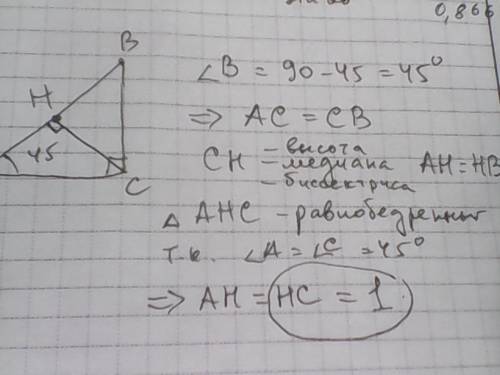 0,866
B
H
45
C
∠B = 90 - 45 = 45°
⇒ AC = CB
CH - высота
- медиана AH = HB
- биссектриса
Δ AHC - равнобедренный
т.к. ∠A = ∠C = 45°
⇒ AH = HC = 1